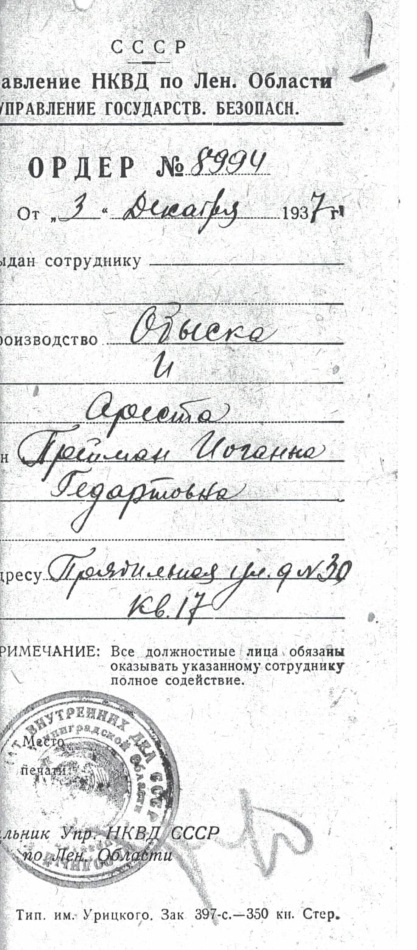 1
СССР
авление НКВД по Лен. Области
УПРАВЛЕНИЕ ГОСУДАРСТВ. БЕЗОПАСН.
ОРДЕР № 8994
От „3“ Декабря 1937 г.
ыдан сотруднику
роизводство Обыска
и
Ареста
н Прейман Иоганна
Гедартовна
дресу Прядильная ул. д №30
Кв. 17
РИМЕЧАНИЕ: Все должностные лица обязаны
оказывать указанному сотруднику
полное содействие.
ВНУТРЕННИХ ДЕЛ СССР
Место
печати
льник Упр. НКВД СССР
по Лен. Области
Тип. им. Урицкого. Зак 397-с.—350 кн. Стер.